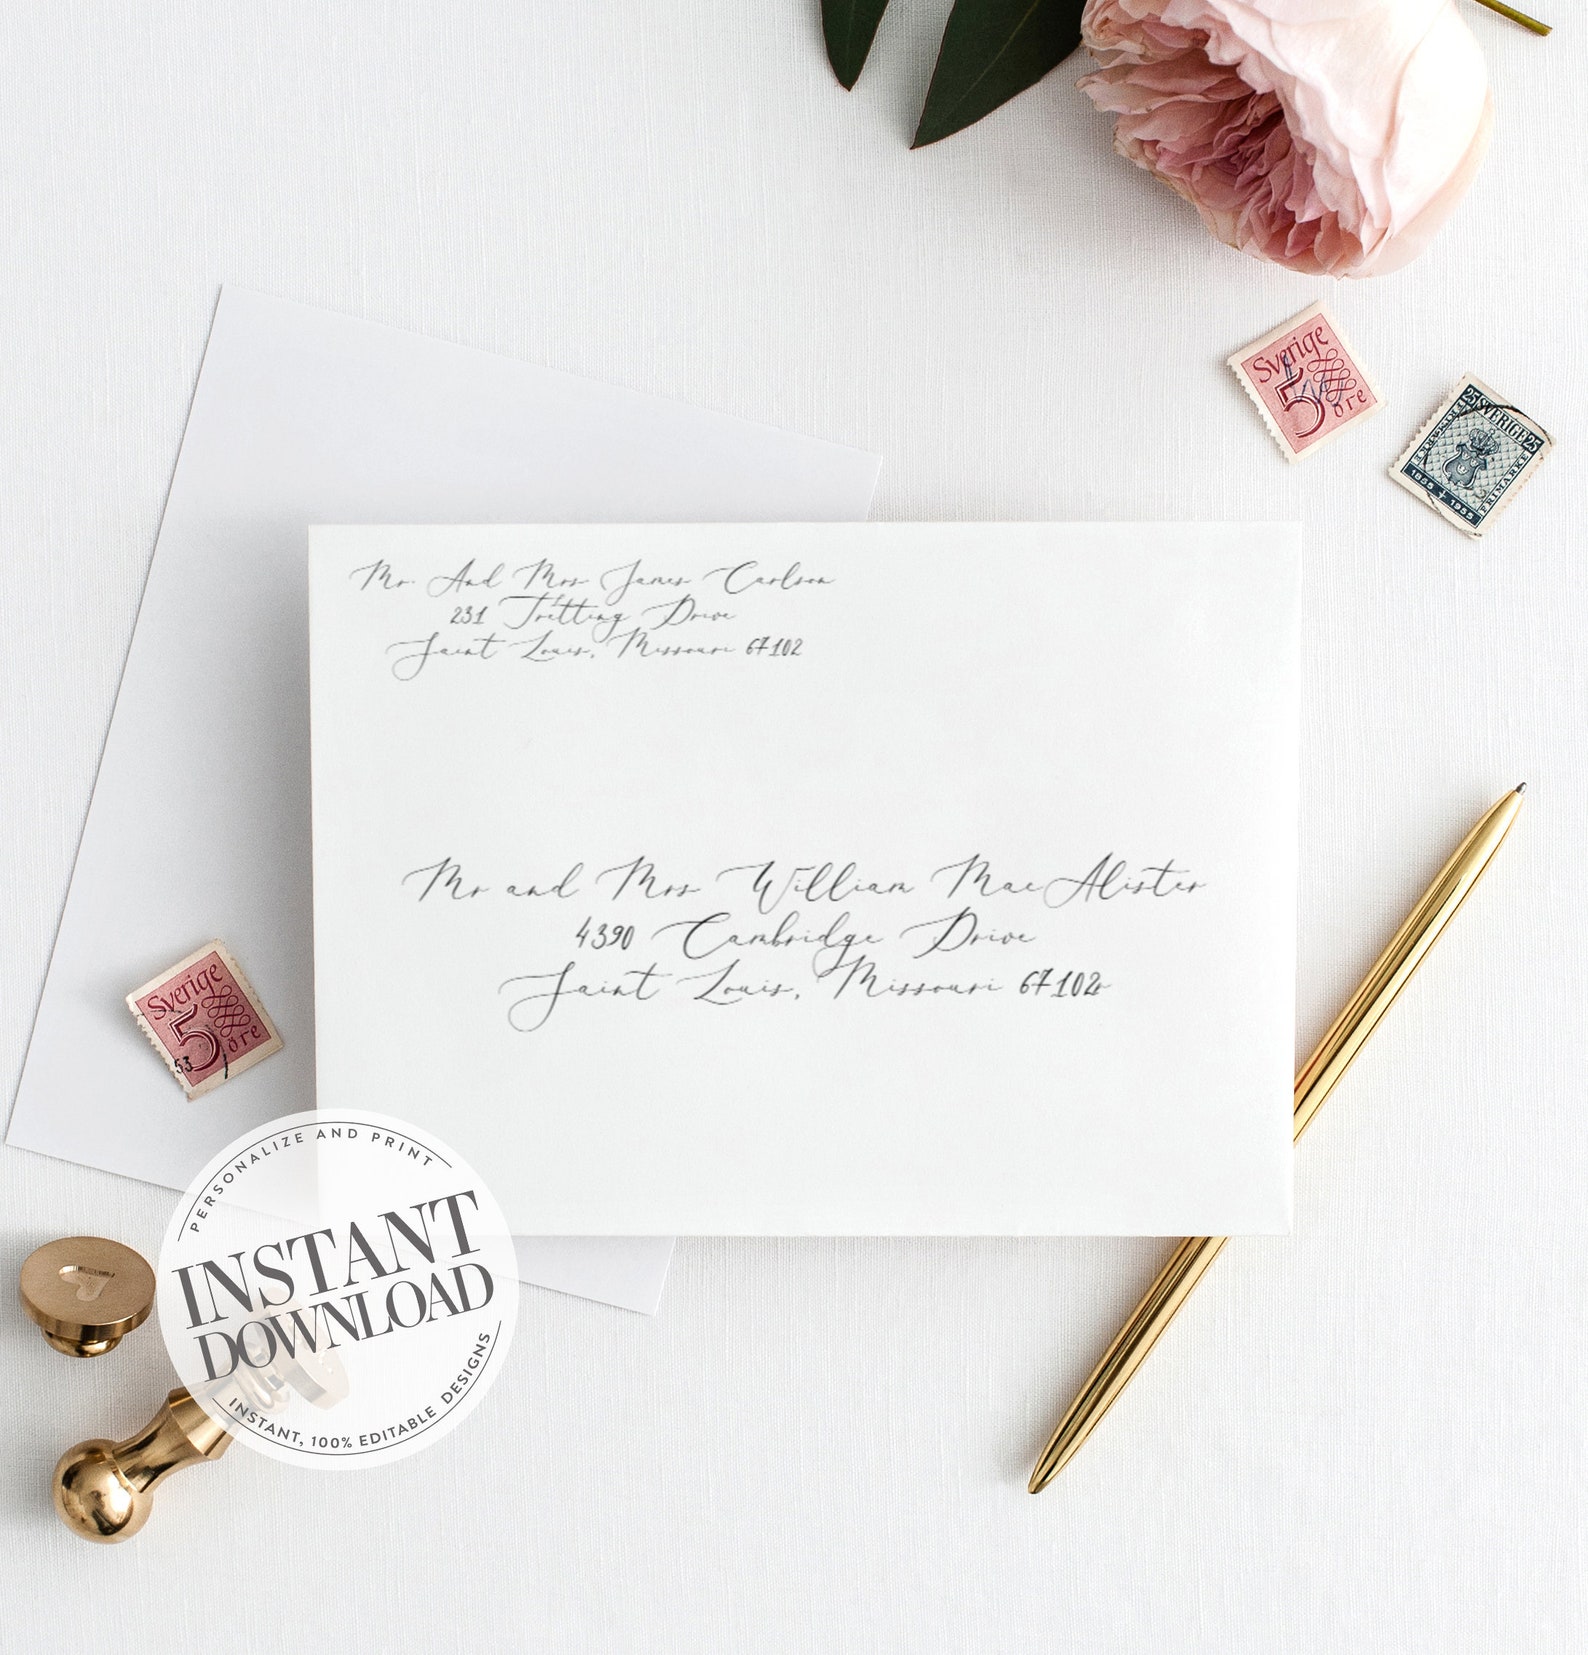 Sverige
5
öre
25 SVERIGE 25
FRIMÄRKE
FRIMÄRKE
1855 1955
Mr. And Mrs James Carlson
231 Drive
Saint Louis, Missouri 67102
Mr and Mrs William MacAlister
4390 Cambridge Drive
Saint Louis, Missouri 67102
Sverige
5
öre
53
PERSONALIZE AND PRINT
INSTANT
DOWNLOAD
INSTANT, 100% EDITABLE DESIGNS